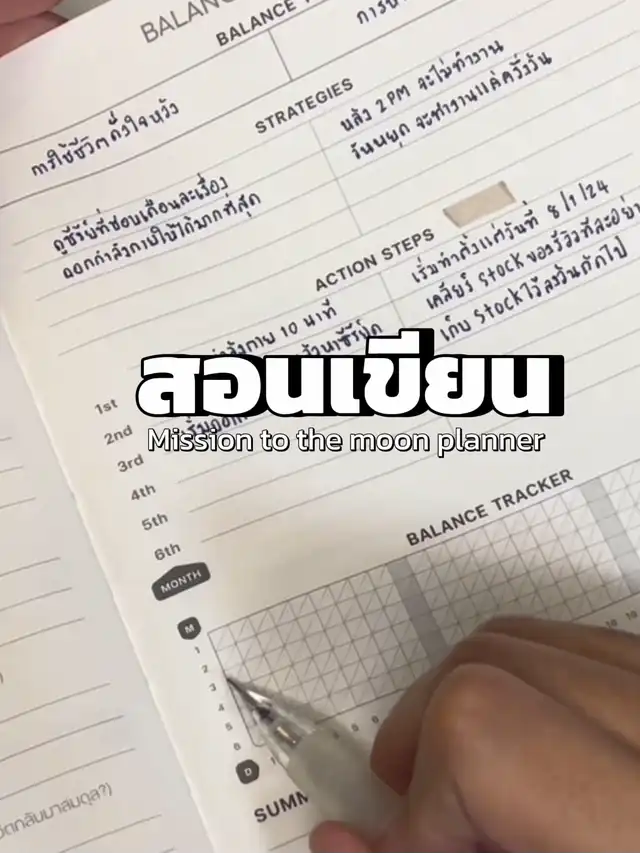 BALANC
BALANCE
การใช้ชีวิตดั่งใจหวัง
STRATEGIES
ดูซีรีย์ที่ชอบเดือนละเรื่อง
ออกกำลังกายให้ได้มากที่สุด
หลัง 2 PM จะไม่ทำงาน
วันหยุด จะทำงานแค่ครึ่งวัน
ACTION STEPS
เริ่มทำตั้งแต่วันที่ 8/1/24
เคลียร์ Stock ของรีวิวทีละอย่าง
เก็บ Stock ไว้ลงวันถัดไป
1st
10 นาที
2nd
3rd
4th
5th
6th
สอนเขียน
Mission to the moon planner
BALANCE TRACKER
MONTH
M
1
2
3
4
5
6
D
SUMM